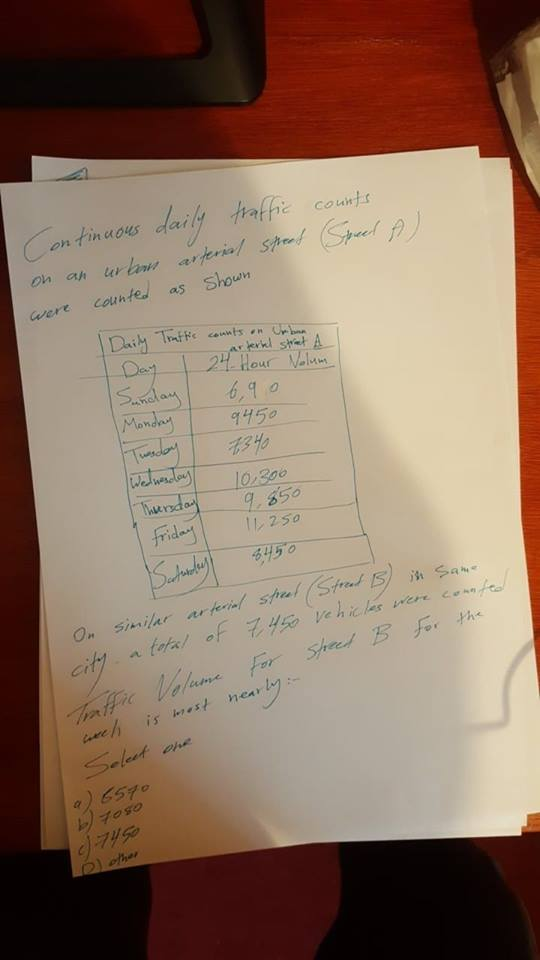 Continuous daily traffic counts
on an urban arterial street (Street A)
were counted as shown
Daily Traffic counts on Urban
arterial street A
Day 24-Hour Volum
Sunday 6,9 0
Monday 9450
Tuesday 7340
Wednesday 10,300
Thursday 9,850
Friday 11,250
Saturday 8,450
On similar arterial street (Street B) in same
city. a total of 7,450 vehicles were counted
Traffic Volume For street B for the
week is most nearly:-
Select one
a) 6570
b) 7080
c) 7450
D) other